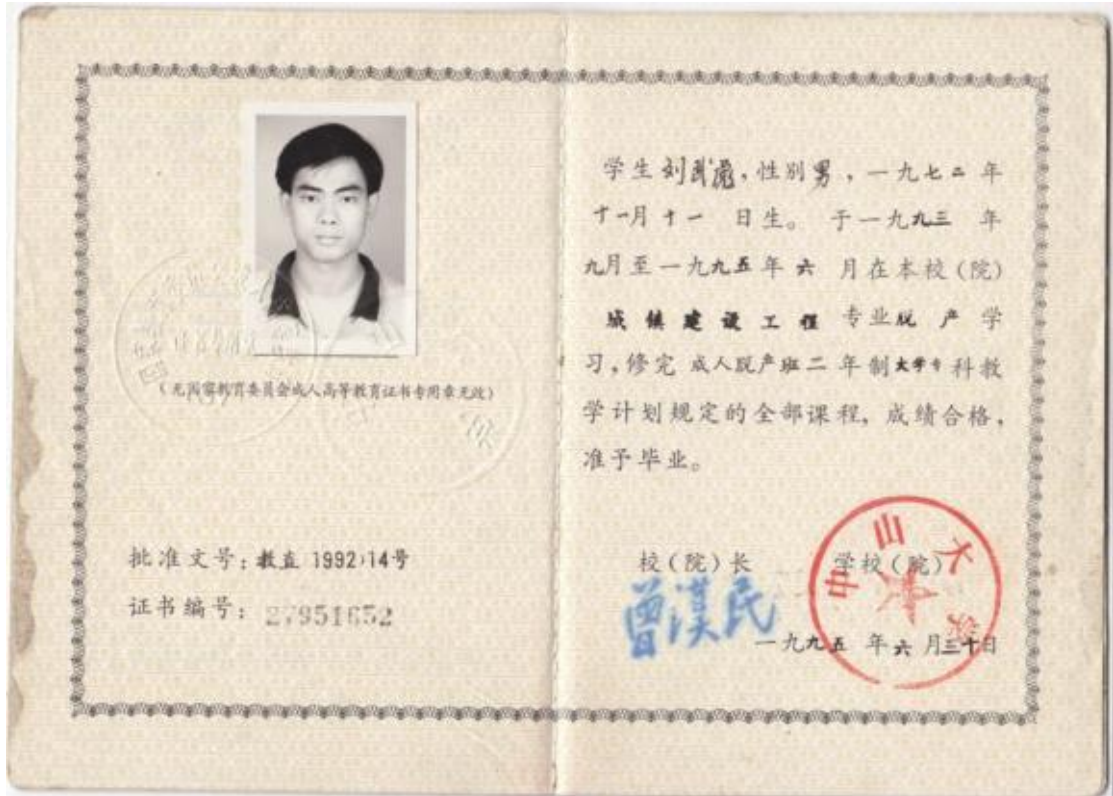 (无国家教育委员会成人高等教育证书专用章无效)
批准文号: 教直 1992)14号
证书编号: 27951652
学生刘武彪, 性别男, 一九七二年
十一月十一 日生。 于一九九三 年
九月至一九九五年六 月在本校(院)
城镇建设工程 专业脱产学
习, 修完 成人脱产班二 年制大学专科教
学计划规定的全部课程, 成绩合格,
准予毕业。
校(院)长 学校(院)
曾漢民
中山大学
一九九五 年六 月三十日